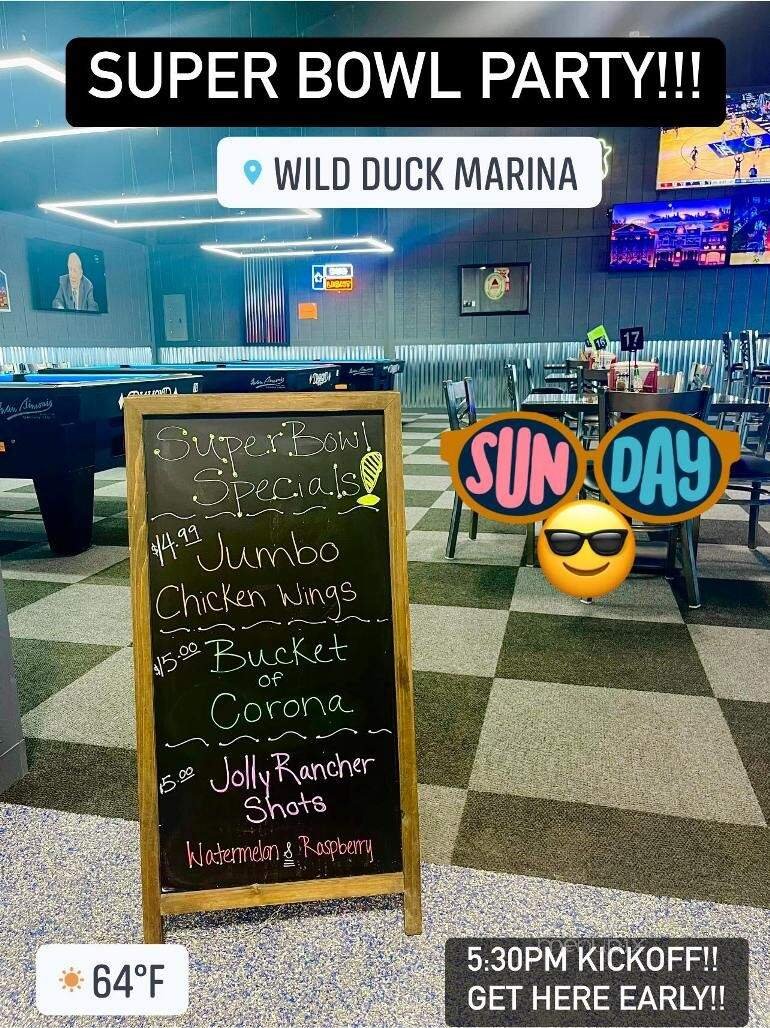 SUPER BOWL PARTY!!!
WILD DUCK MARINA
17
16
SUN DAY
Super Bowl
Specials!
$14.99 Jumbo
Chicken Wings
$15.00 Bucket
of
Corona
$5.00 Jolly Rancher
Shots
Watermelon & Raspberry
64°F
5:30PM KICKOFF!!
GET HERE EARLY!!